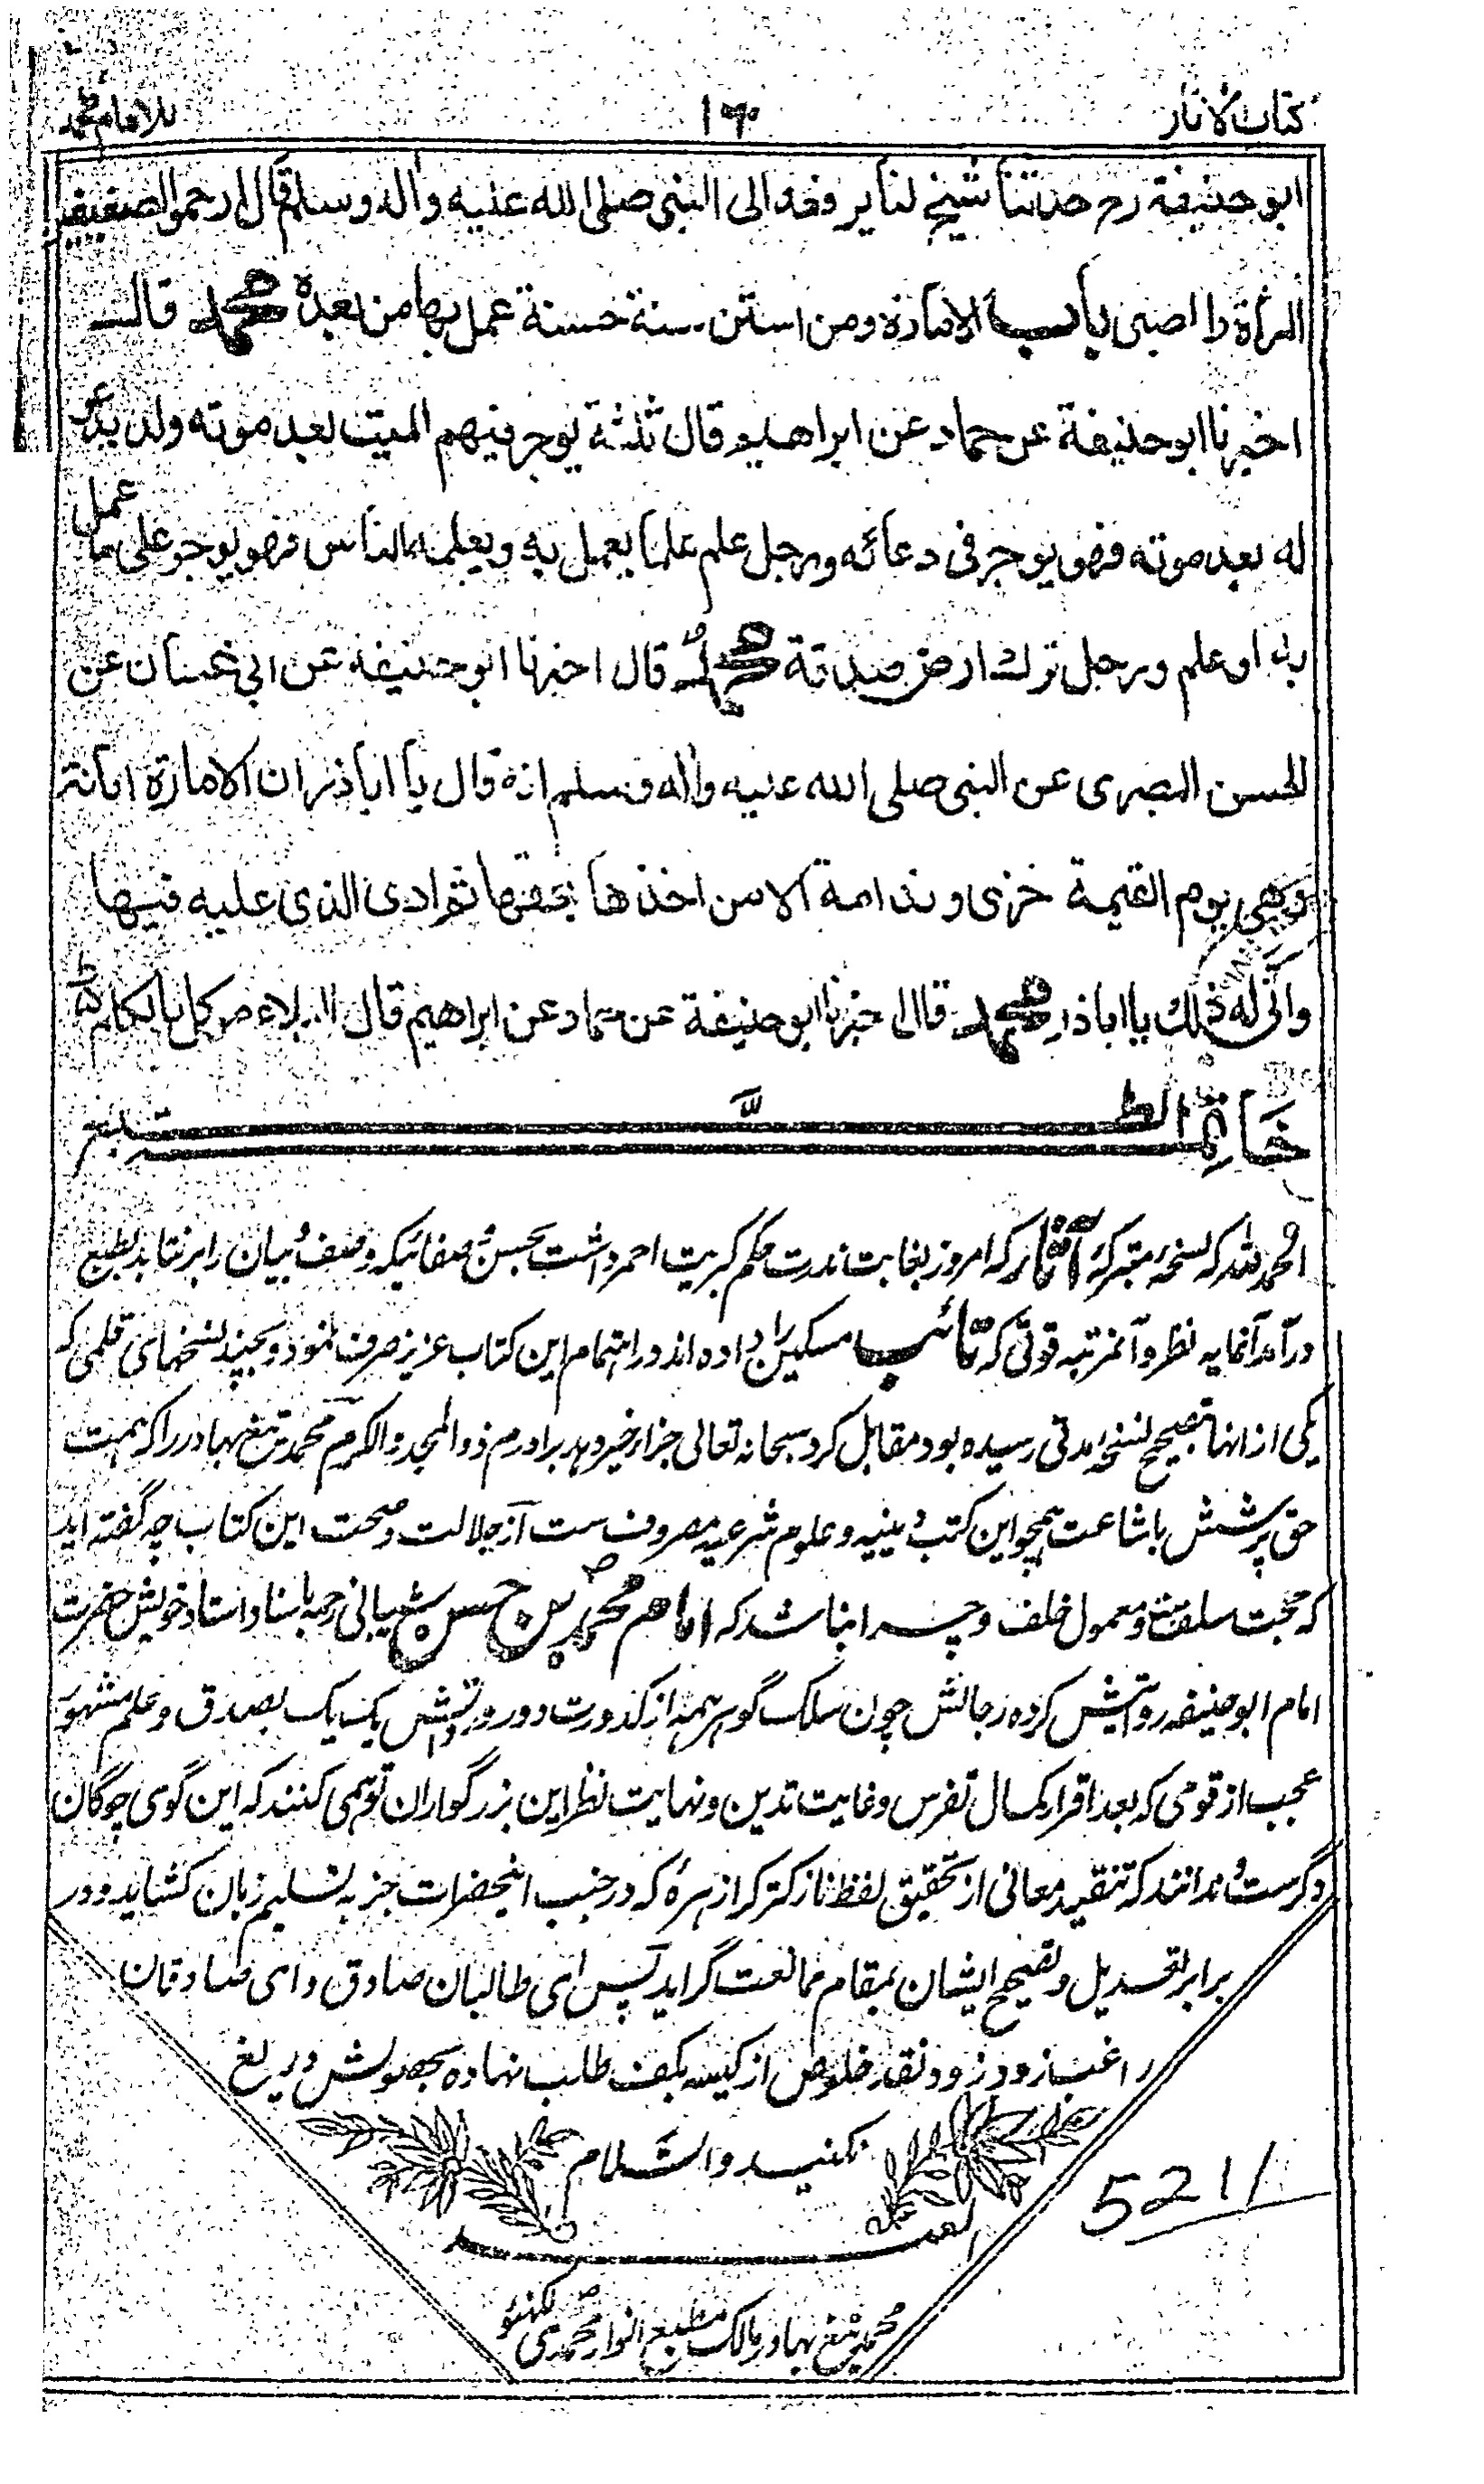 كتاب الاثار
للامام محمد
ابو حنيفة رح حدثنا شيخ لنا يرفعه الى النبى صلى الله عليه واله وسلم قال ارحموا الضعيفين
المرأة والصبى باب الامارة ومن استن سنة حسنة عمل بها من بعده محمد قال
اخبرنا ابو حنيفة عن حماد عن ابراهيم قال ثلثة يوجر فيهم الميت بعد موته ولد يدعو
له بعد موته فهو يوجر فى دعائه ورجل علم علما يعمل به ويعلمه الناس فهو يوجر على ما عمل
به او علم ورجل ترك ارض صدقة محمد قال اخبرنا ابو حنيفة عن ابى غسان عن
الحسن البصرى عن النبى صلى الله عليه واله وسلم انه قال يا اباذر ان الامارة امانة
وهى يوم القيمة خزى وندامة الا من اخذها بحقها ثم ادى الذى عليه فيها
وانى له ذلك يا اباذر محمد قال اخبرنا ابو حنيفة عن حماد عن ابراهيم قال البلاء موكل بالكلام
خاتمة الطبع
الحمد لله که نسخه متبرکه آثار که امروز بغایت ندرت حکم کبریت احمر داشت بحسن صفائیکه وصف بیان را برنتابد بطبع
درآمد آنمایه نظر و آنمرتبه قوتی که تائب مسکین را داده اند در اهتمام این کتاب عزیز صرف نمود و بچند نسخهای قلمی که
یکی از انها بتصحیح نسخه مدنی رسیده بود مقابل کرد سبحانه تعالی جزاء خیر دهد برادرم ذو المجد والکرم محمد تیغ بهادر را که همت
حق پرستش باشاعت همچو این کتب دینیه و علوم شرعیه مصروف ست از جلالت و صحت این کتاب چه گفته اید
که حجت سلف ست و معمول خلف و چرا نباشد که امام محمد بن حسن شیبانی رحمه باسناد استاد خویش حضرت
امام ابو حنیفه روایتش کرده رجالش چون سلک گوهر همه از کدورت دور و رواتش یک یک بصدق و علم مشهور
عجب از قومی که بعد اقرار کمال تفرس و غایت تدین و نهایت نظر این بزرگواران توهمی کنند که این گوی چوگان
دگرست و ندانند که تنقید معانی از تحقیق لفظ نازکتر کرا زهره که در جنب اینحضرات جز به تسلیم زبان کشاید و در
برابر تعدیل و تصحیح ایشان بمقام ممانعت گراید پس ای طالبان صادق و ای صادقان
راغب زود زود نقد خلوص از کیسه بکف طلب نهاده بحصولش دریغ
نکنید والسلام
العبد
محمد تیغ بهادر مالک مطبع انوار محمدی لکهنؤ
5211